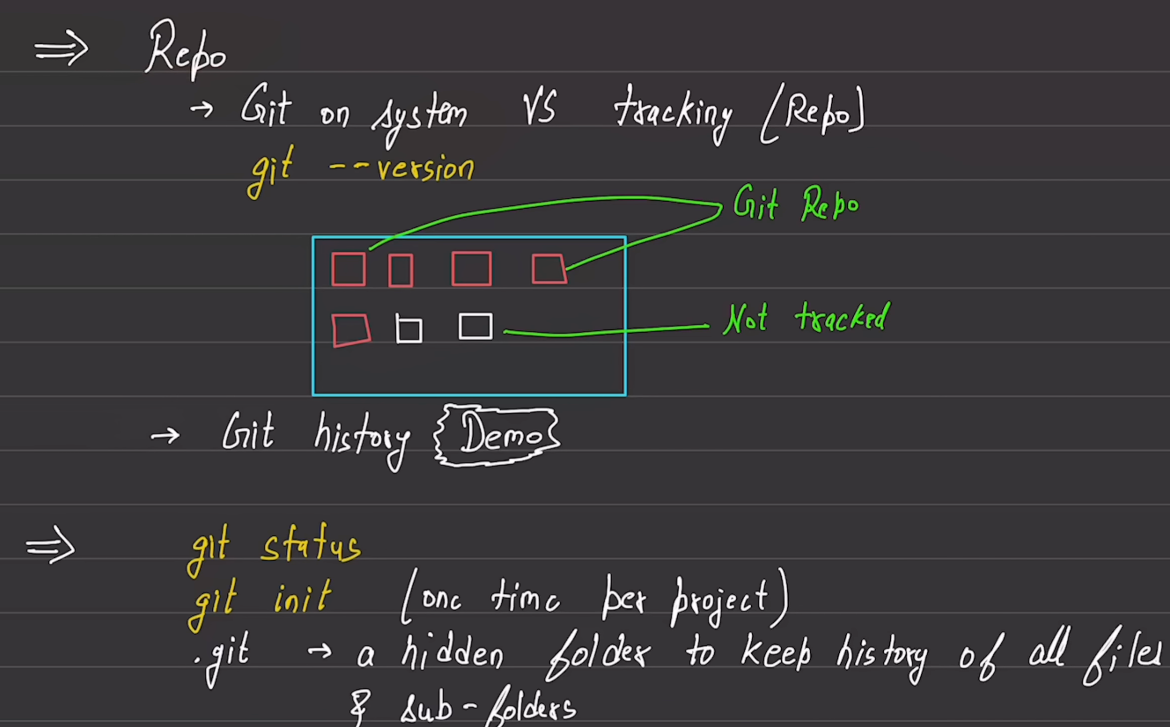 ⇒ Repo
→ Git on system VS tracking (Repo)
git --version
Git Repo
Not tracked
→ Git history {Demo}
⇒ git status
git init (one time per project)
.git → a hidden folder to keep history of all files
& sub-folders